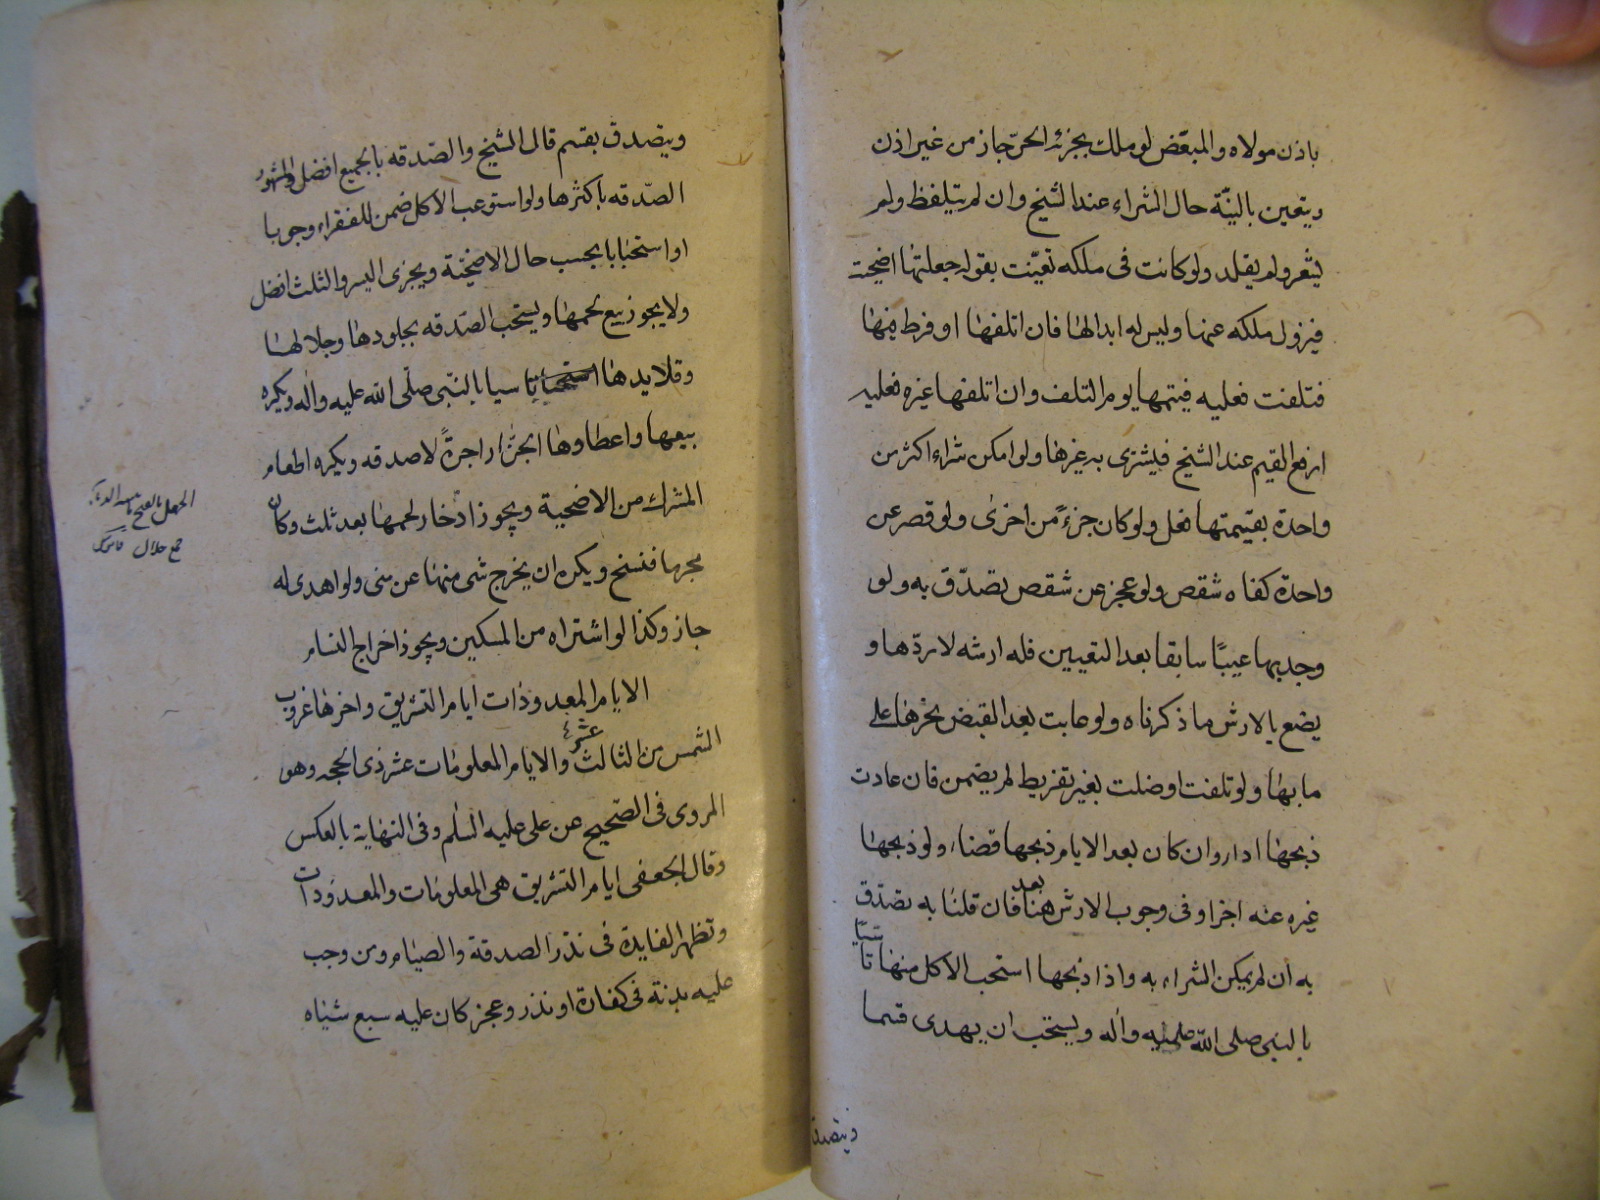 باذن مولاه والمبعّض لو ملك بجزئه الحرّ جاز من غير اذن
ويتعين بالنيّة حال الشراء عند الشيخ وان لم يتلفظ ولم
يشعر ولم يقلد ولو كانت فى ملكه تعيّنت بقوله جعلتها اضحية
فيزول ملكه عنها وليس له ابدالها فان اتلفها او فرط فيها
فتلفت فعليه قيمتها يوم التلف وان اتلفها غيره فعليه
ارفع القيم عند الشيخ فيشترى به غيرها ولو امكن شراء اكثر من
واحدة بقيمتها فعل ولو كان جزءً من اخرى ولو قصر عن
واحدة كفاه شقص ولو عجز عن شقص تصدّق به ولو
وجد بها عيبًا سابقا بعد التعيين فله ارشه لا ردّها و
يضع بالارش ما ذكرناه ولو عابت بعد القبض نحرها على
ما بها ولو تلفت او ضلت بغير تفريط لم يضمن فان عادت
ذبحها اداء وان كان بعد الايام ذبحها قضاء ولو ذبحها
غيره عنه اجزا وفى وجوب الارش هنا بعد فان قلنا به تصدّق
به ان لم يمكن الشراء به واذا ذبحها استحب الاكل منها تاسيا
بالنبى صلى الله عليه واله ويستحب ان يهدى قسما
ويتصدق
ويتصدق بقسم قال الشيخ والصّدقه بالجميع افضل والمشهور
الصّدقه باكثرها ولو استوعب الاكل ضمن للفقراء وجوبا
او استحبابا بحسب حال الاضحيّة ويجزى اليسير والثلث افضل
ولا يجوز بيع لحمها ويستحب الصّدقه بجلودها وجلالها
وقلايدها تاسيا بالنّبى صلّى الله عليه واله ويكره
بيعها واعطاوها الجزّار اجرةً لا صدقه ويكره اطعام
المشرك من الاضحية ويجوز ادّخار لحمها بعد ثلث وكان
محرما فنسخ ويكره ان يخرج شى منها عن منى ولو اهدى له
جاز وكذا لو اشتراه من المسكين ويجوز اخراج السنام
الايام المعدودات ايام التشريق واخرها غروب
الشمس من الثالث عشر والايام المعلومات عشر ذى الحجه وهو
المروى فى الصّحيح عن على عليه السلم وفى النهاية بالعكس
وقال الجعفى ايام التشريق هى المعلومات والمعدودات
وتظهر الفايدة فى نذر الصدقة والصيام ومن وجب
عليه بدنة فى كفارة او نذر وعجز كان عليه سبع شياه
جمع جلال